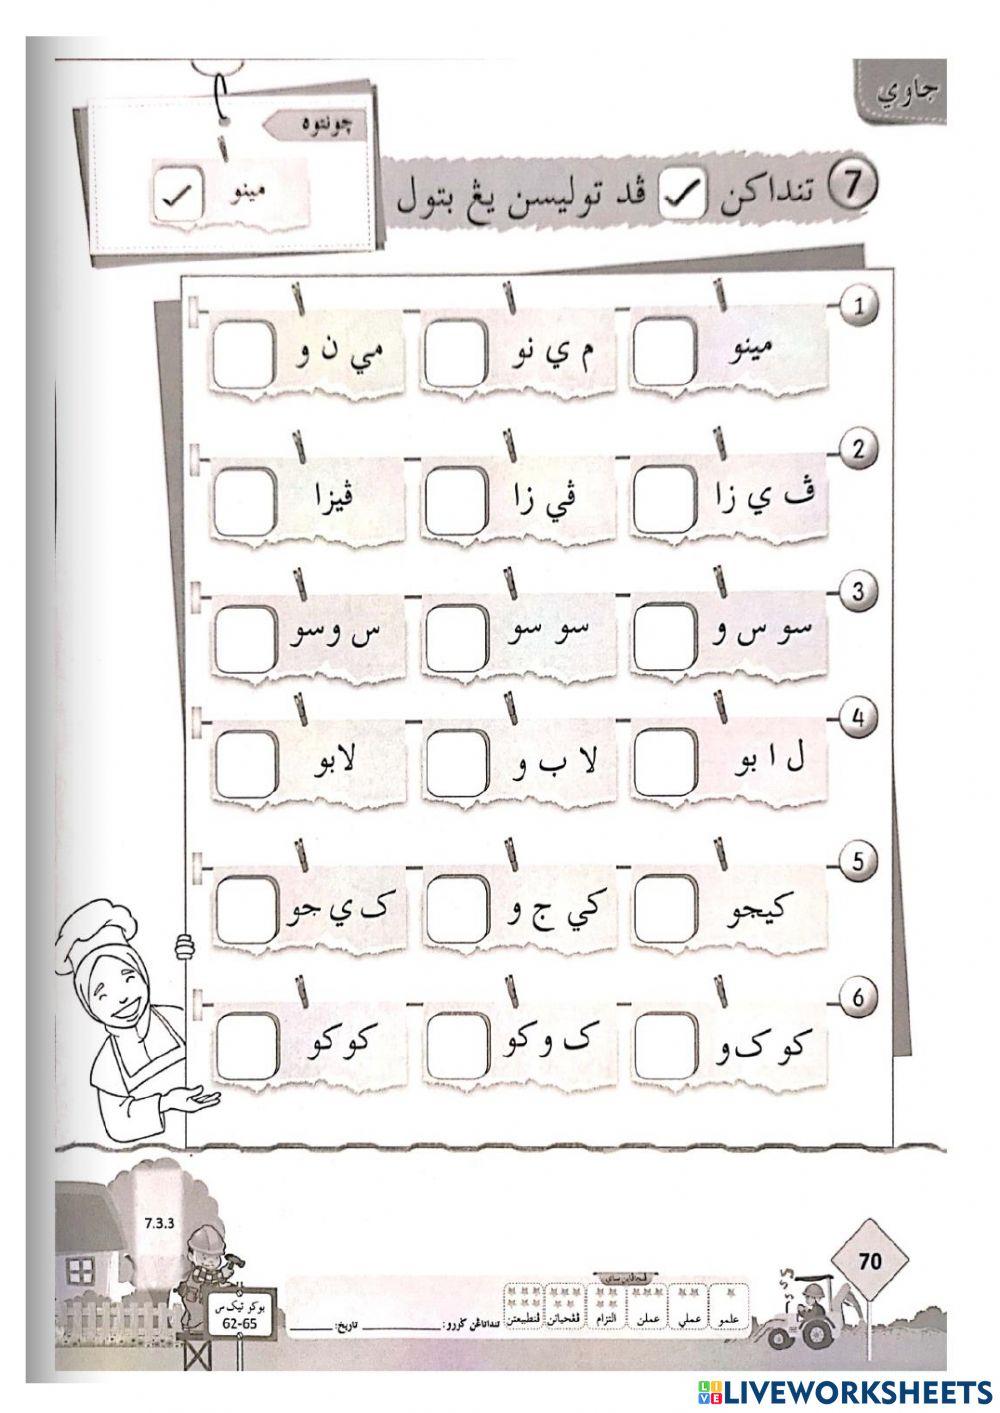 جاوي
چونتوه
مينو
7 تنداكن ✓ ڤد توليسن يڠ بتول
1 مينو م ي نو مي ن و
2 ڤ ي زا ڤي زا ڤيزا
3 سو س و سو سو س وسو
4 ل ا بو لا ب و لابو
5 كيجو كي ج و ک ي جو
6 كو ک و ک و كو كوكو
7.3.3
70
بوكو تيک س
62-65
علمو عملي عملن التزام ڤڠحياتن
تنداتاڠن ڬورو: تاريخ:
LIVEWORKSHEETS